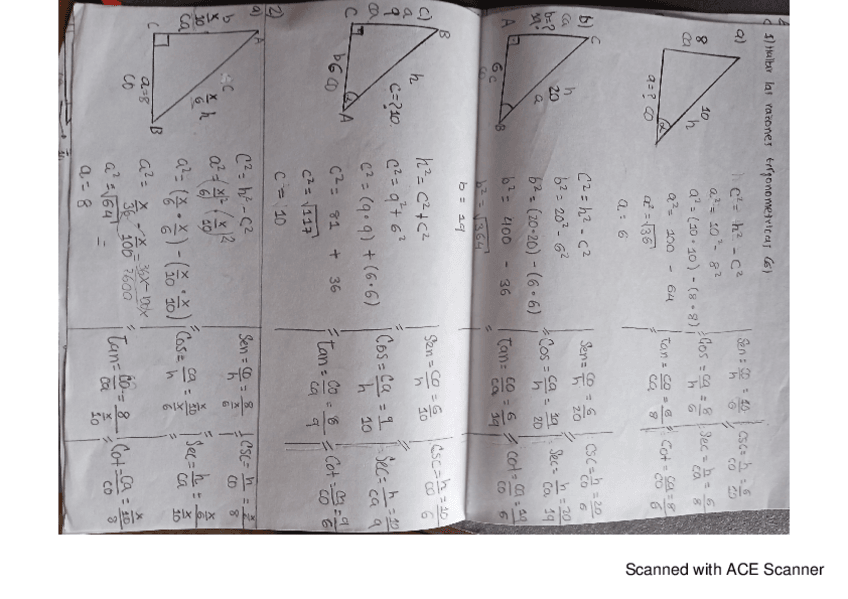 1) Hallar las razones trigonometricas (6)
a)
8
ca
10
h
a=? co
α
c² = h² - c²
a² = 10² - 8²
a² = (10·10) - (8·8)
a² = 100 - 64
a² = √36
a = 6
Sen = co/h = 10/6
Cos = ca/h = 8/6
Tan = co/ca = 6/8
Csc = h/co = 6/20
Sec = h/ca = 6/8
Cot = ca/co = 8/6
b)
C
ca
b=?
19
h
20
a
A
6c
co
B
C² = h² - c²
b² = 20² - 6²
b² = (20·20) - (6·6)
b² = 400 - 36
b² = √364
b = 19
Sen = co/h = 6/20
Cos = ca/h = 19/20
Tan = co/ca = 6/19
Csc = h/co = 20/6
Sec = h/ca = 20/19
Cot = ca/co = 19/6
c)
B
a
9
ca
C
h
c=? 10
b6 co
α
A
h² = c² + c²
c² = 9² + 6²
c² = (9·9) + (6·6)
c² = 81 + 36
c² = √117
c = 10
Sen = co/h = 6/10
Cos = ca/h = 9/10
Tan = co/ca = 6/9
Csc = h/co = 10/6
Sec = h/ca = 10/9
Cot = ca/co = 9/6
2)
a)
A
b
x/10
ca
C
c
x/6 h
a=8
co
B
C² = h² - c²
a² = (x/6)² - (x/10)²
a² = (x/6 · x/6) - (x/10 · x/10)
a² = x/36 - x/100
a² = √64 =
a = 8
Sen = co/h = 8/x/6
Cos = ca/h = x/10/x/6
Tan = co/ca = 8/x/10
Csc = h/co = x/8
Sec = h/ca = x/6/x/10
Cot = ca/co = x/10/8
Scanned with ACE Scanner